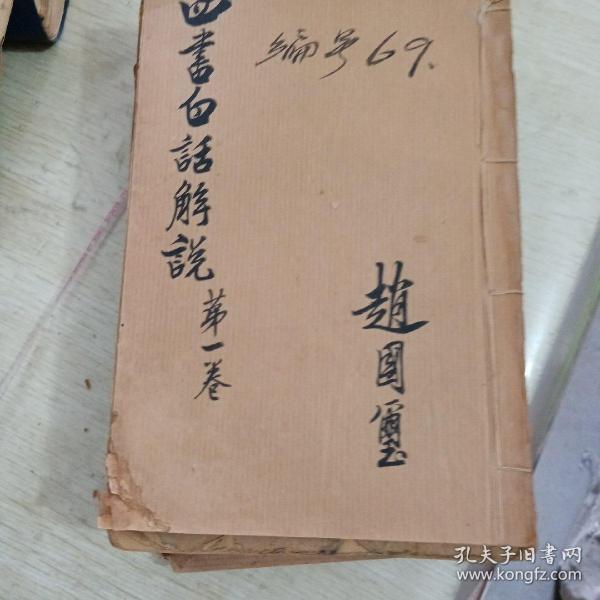 四書白話解説
第一卷
编号69.
趙國璽
孔夫子旧書网
www.kongfz.com